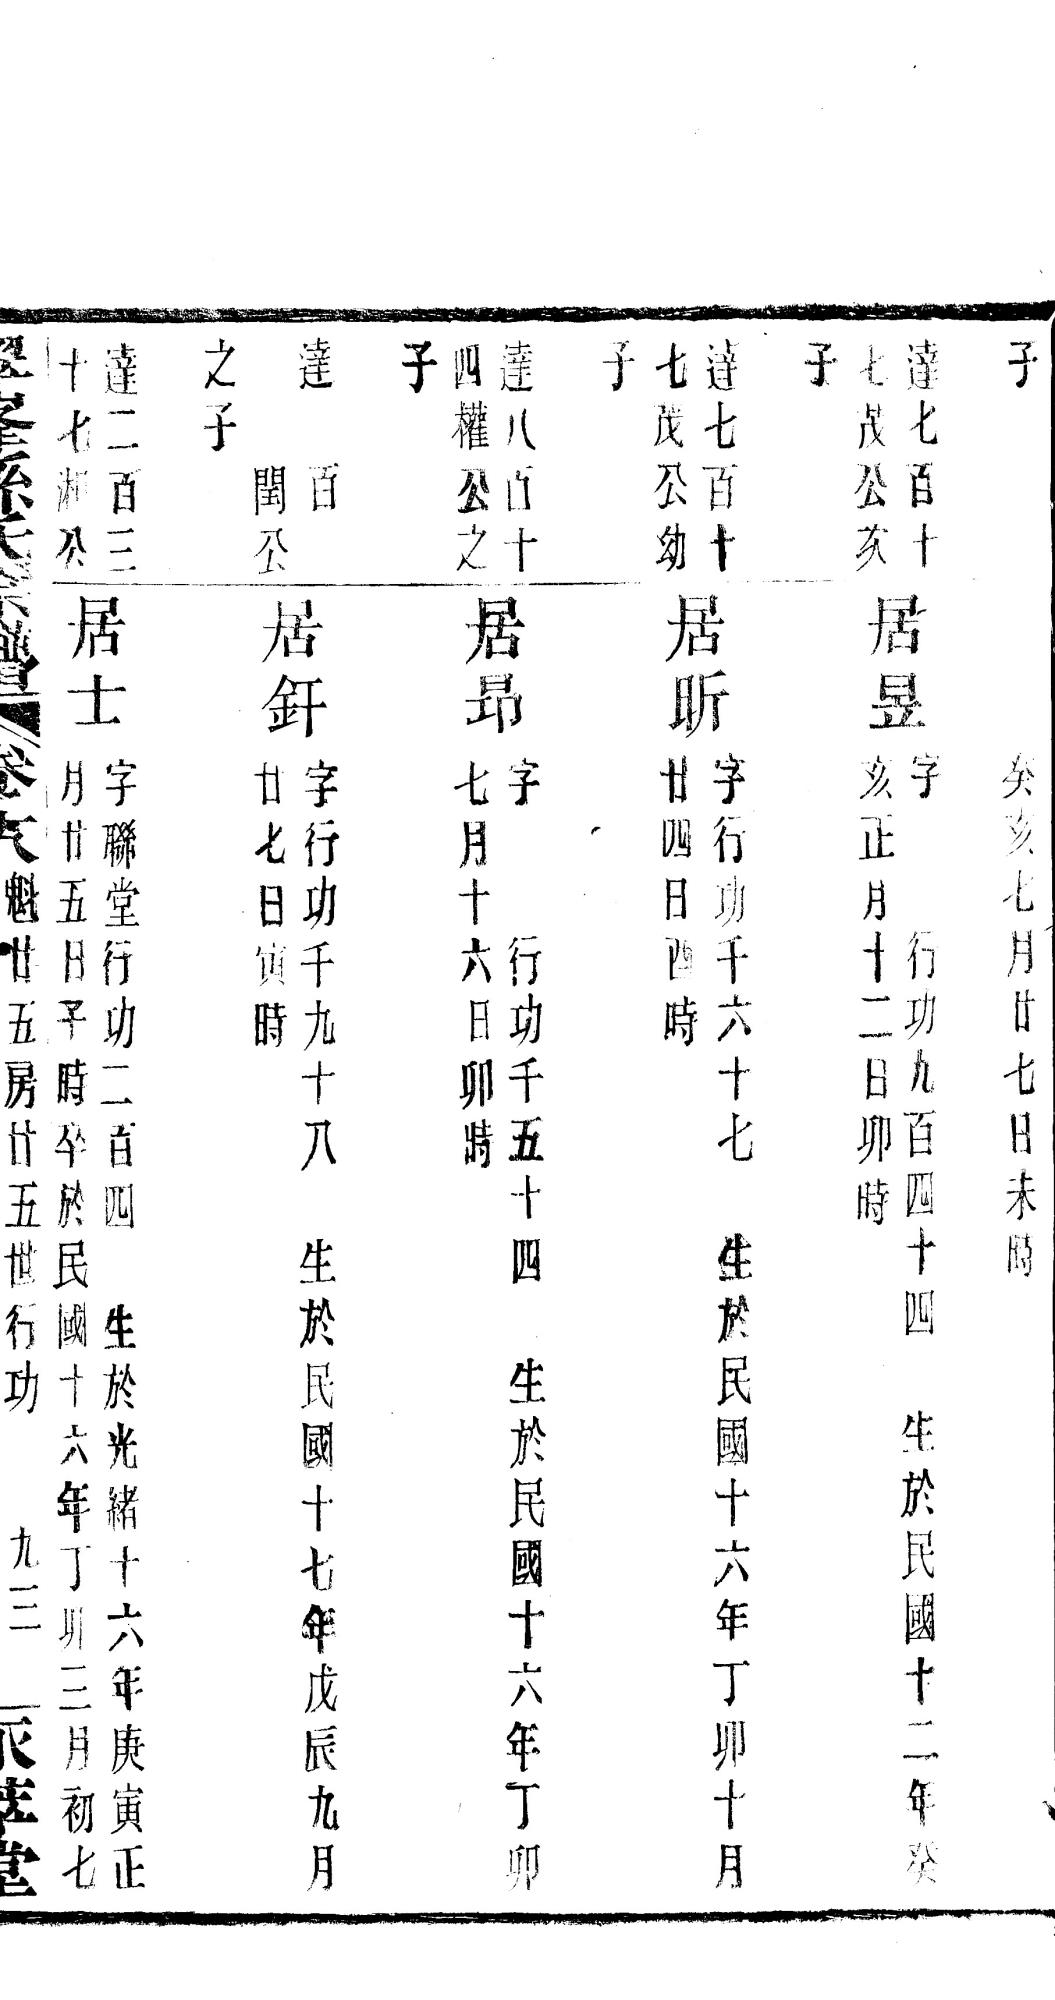 子
癸亥七月廿七日未時
達七百十
七茂公亥
子
居昱
字 行功九百四十四 生於民國十二年癸
亥正月十二日卯時
達七百十
七茂公幼
子
居昕
字行功千六十七 生於民國十六年丁卯十月
廿四日酉時
達八百十
四權公之
子
居昂
字 行功千五十四 生於民國十六年丁卯
七月十六日卯時
達 百
閏公
之子
居釬
字行功千九十八 生於民國十七年戊辰九月
廿七日寅時
達二百三
十七湘公
居士
字聯堂行功二百四 生於光緒十六年庚寅正
月廿五日子時卒於民國十六年丁卯三月初七
卷 魁廿五房廿五世行功 九三 堂